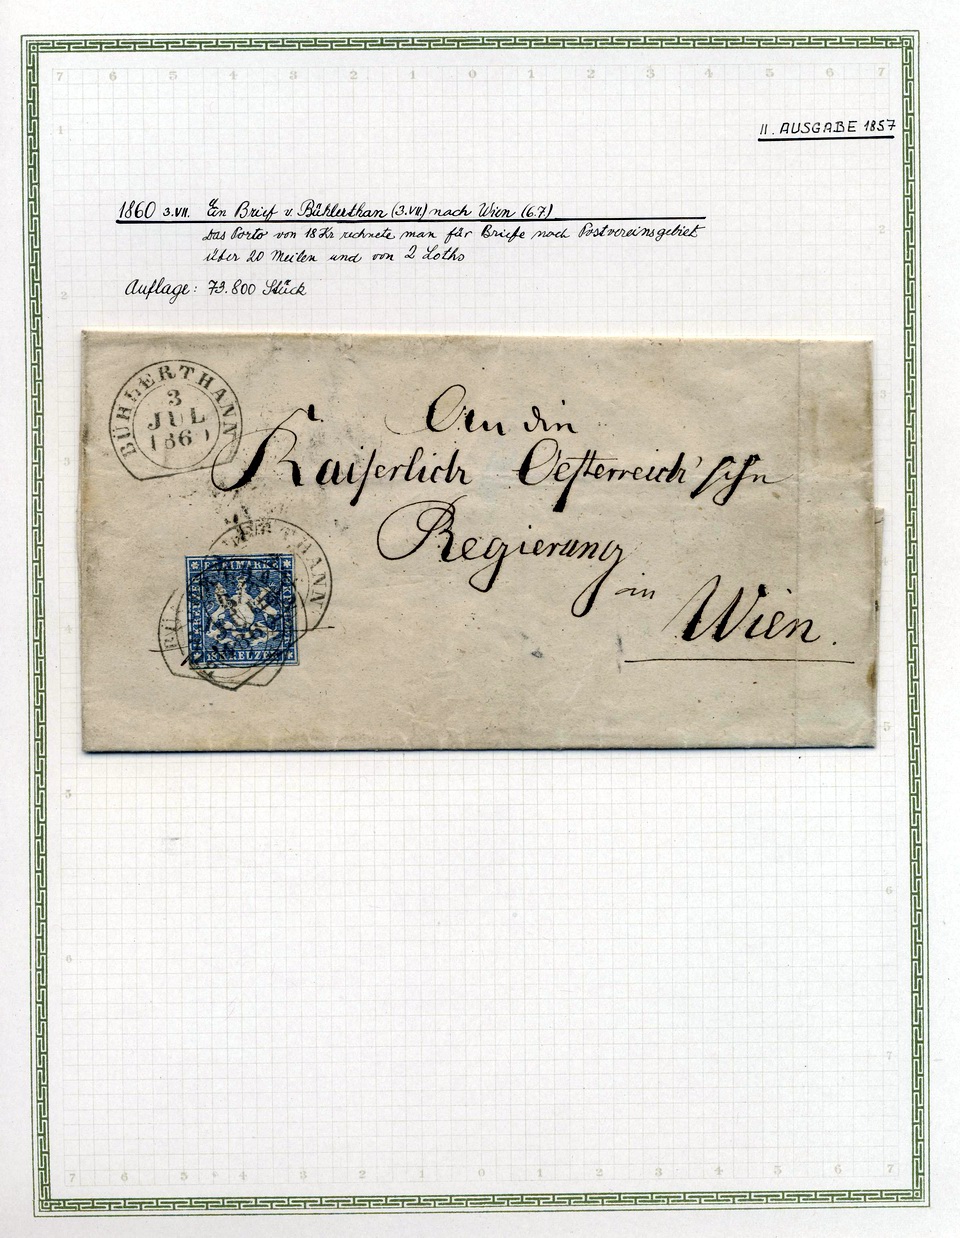 II. AUSGABE 1857
1860 3.VII. Ein Brief v. Bühlerthan (3.VII) nach Wien (6.7)
Das Porto von 18 Kr rechnete man für Briefe nach Postvereinsgebiet
über 20 Meilen und von 2 Loths
Auflage: 73.800 Stück
BÜHLERTHANN
3
JUL
186
An die
Kaiserlich Oesterreich'sche
Regierung
in
Wien.
FREIMARKE
18 KREUZER